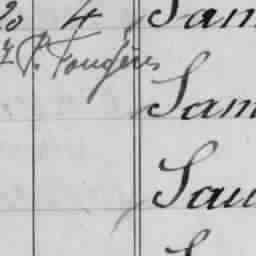 20 4 Sam
P. Fougères
Sam
Sau